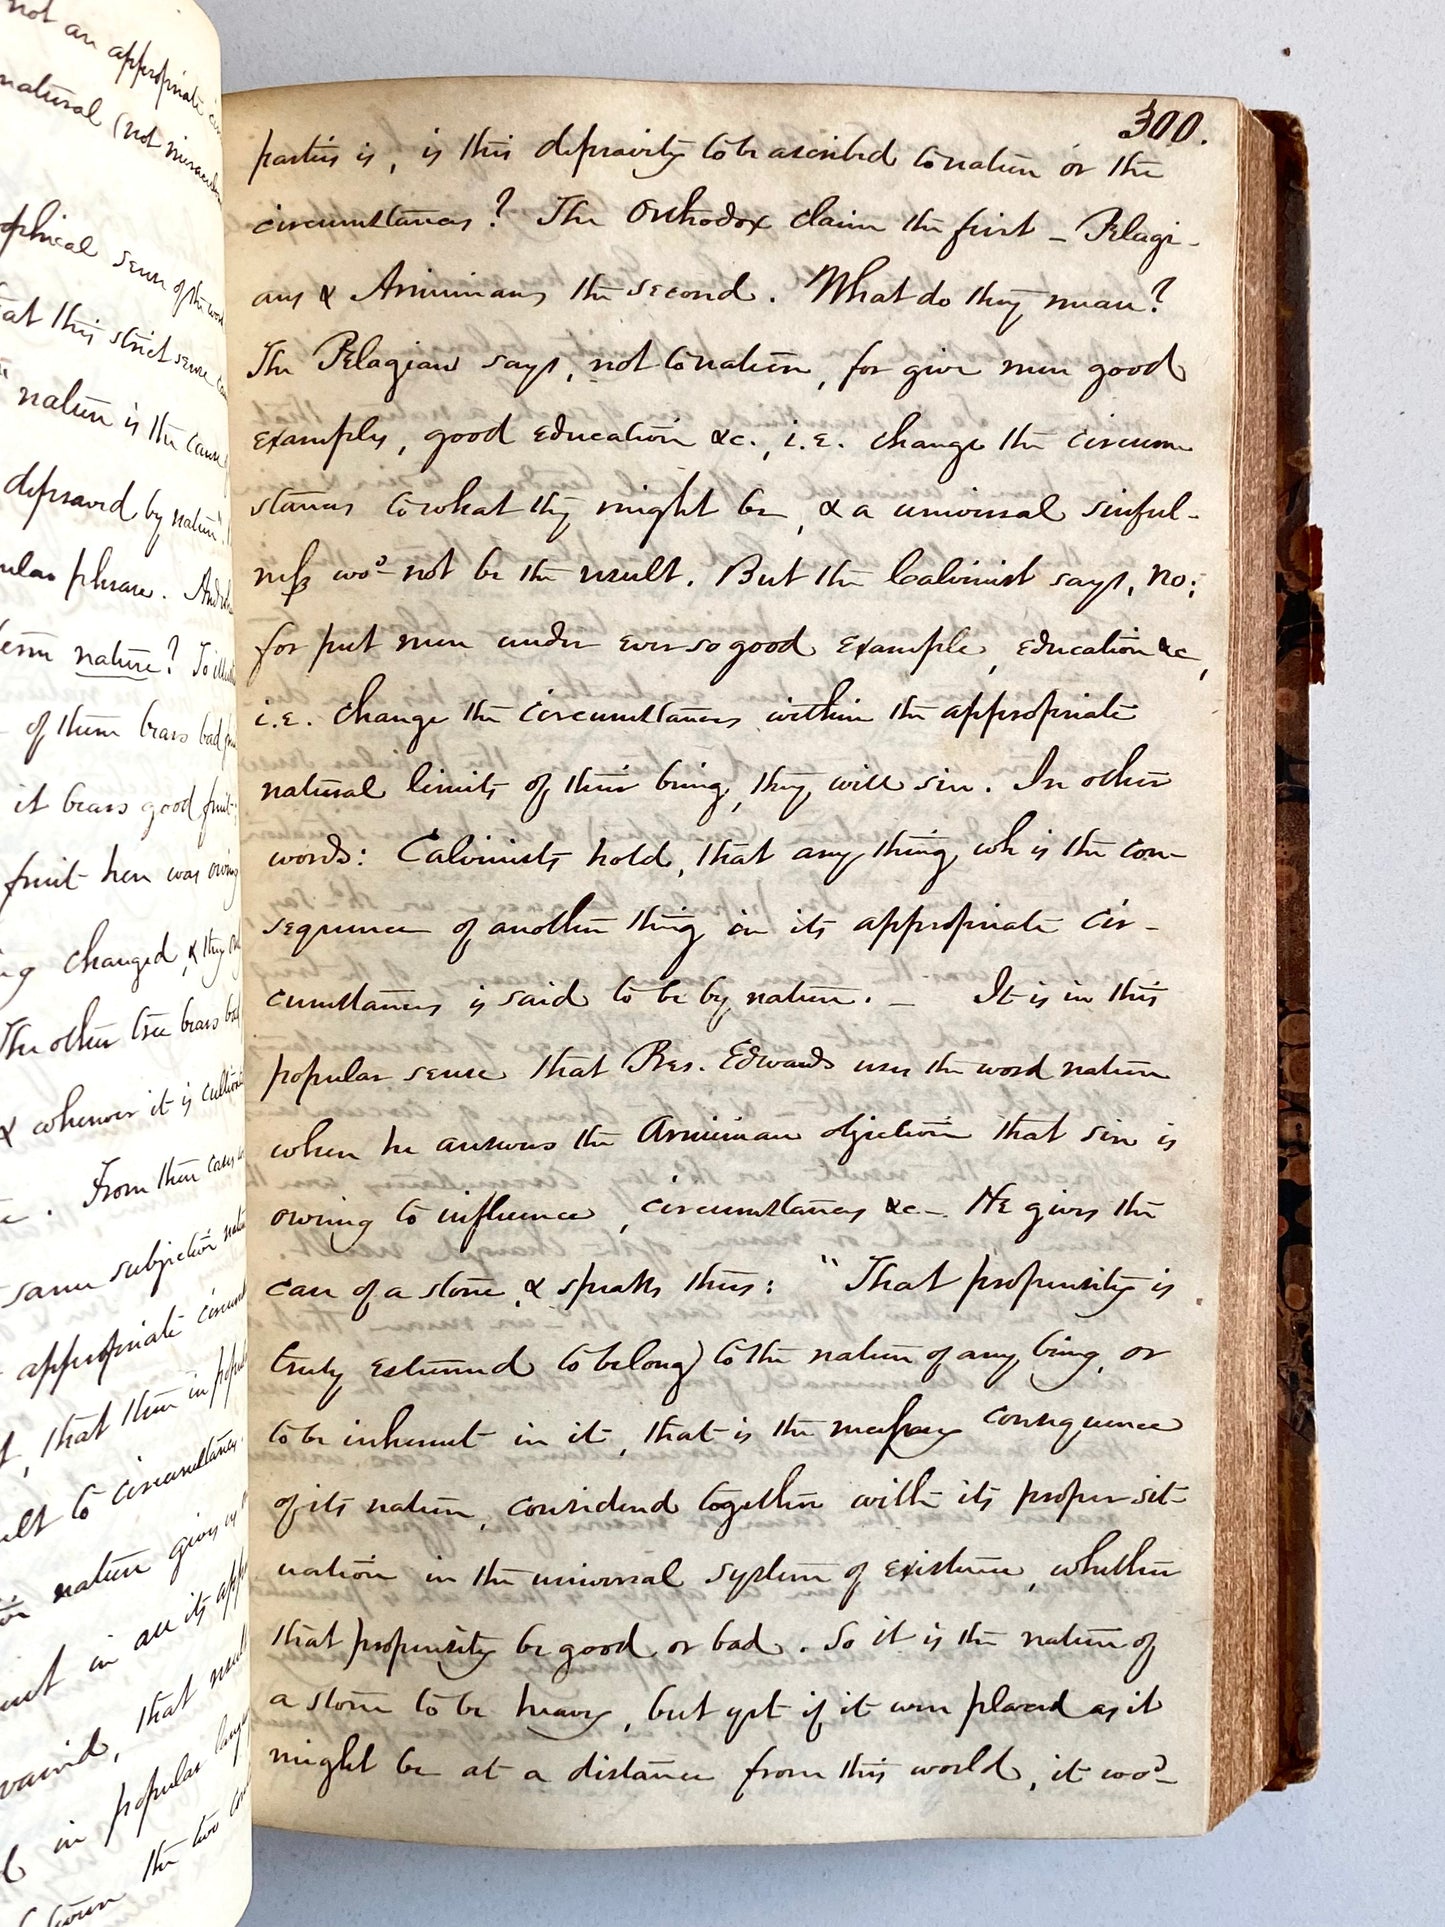 not an appropriate
natural (not miracul
ophical sense of the word
at this strict sense
nature is the cause
depraved by nature".
ular phrase.
term nature? To
of them bears bad
it bears good fruit;
fruit here was owing
changed, & they
The other tree bears bad
& whenever it is
From these cases
same subjection
appropriate
that then in
ult to circumstances.
nature gives
in all its
that
in popular
the two
300.
parties is, is this depravity to be ascribed to nature or the
circumstances? The Orthodox claim the first – Pelagi-
ans & Arminians the second. What do they mean?
The Pelagian says, not to nature, for give men good
examples, good education &c., i.e. change the circum
stances to what they might be, & a universal sinful-
ness wod not be the result. But the Calvinist says, no;
for put men under ever so good example, education &c,
i.e. change the circumstances within the appropriate
natural limits of their being, they will sin. In other
words: Calvinists hold, that any thing wh is the con-
sequence of another thing in its appropriate cir-
cumstances is said to be by nature. – It is in this
popular sense that Pres. Edwards uses the word nature
when he answers the Arminian objection that sin is
owing to influence, circumstances &c – He gives the
case of a stone, & speaks thus: "That propensity is
truly esteemed to belong to the nature of any being, or
to be inherent in it, that is the necessary consequence
of its nature, considered together with its proper sit-
uation in the universal system of existence, whether
that propensity be good or bad. So it is the nature of
a stone to be heavy, but yet if it were placed as it
might be at a distance from this world, it wod